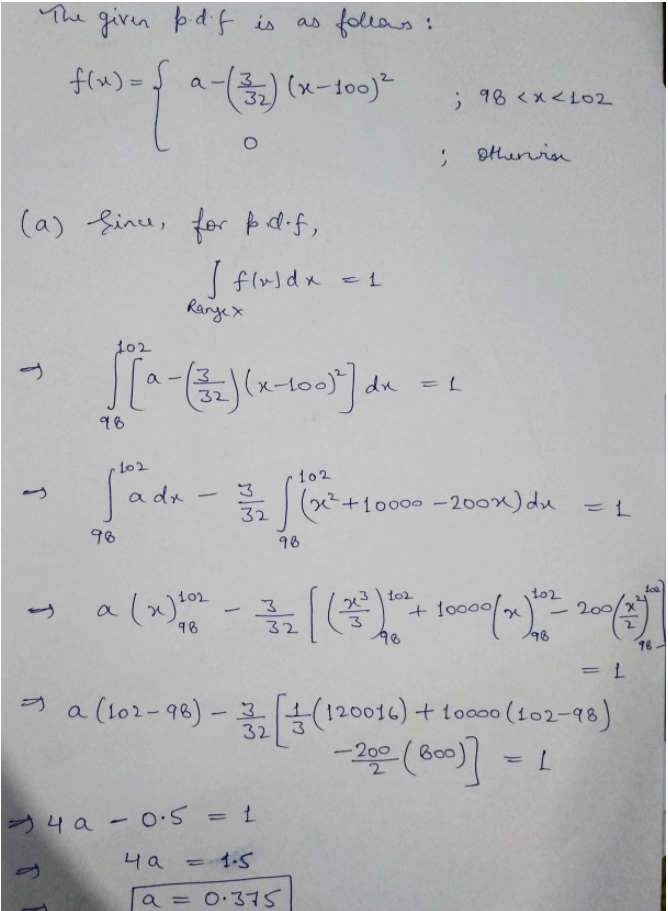 The given p.d.f is as follows :
f(x) = { a - (3/32) (x-100)² ; 98 < x < 102
0 ; otherwise
(a) Since, for p.d.f,
∫ f(x) dx = 1
Range x
⇒ ∫₉₈¹⁰² [a - (3/32)(x-100)²] dx = 1
⇒ ∫₉₈¹⁰² a dx - 3/32 ∫₉₈¹⁰² (x² + 10000 - 200x) dx = 1
⇒ a (x)₉₈¹⁰² - 3/32 [(x³/3)₉₈¹⁰² + 10000 (x)₉₈¹⁰² - 200 (x²/2)₉₈¹⁰²]
= 1
⇒ a (102-98) - 3/32 [1/3 (120016) + 10000 (102-98)
- 200/2 (800)] = 1
⇒ 4a - 0.5 = 1
⇒ 4a = 1.5
⇒ a = 0.375